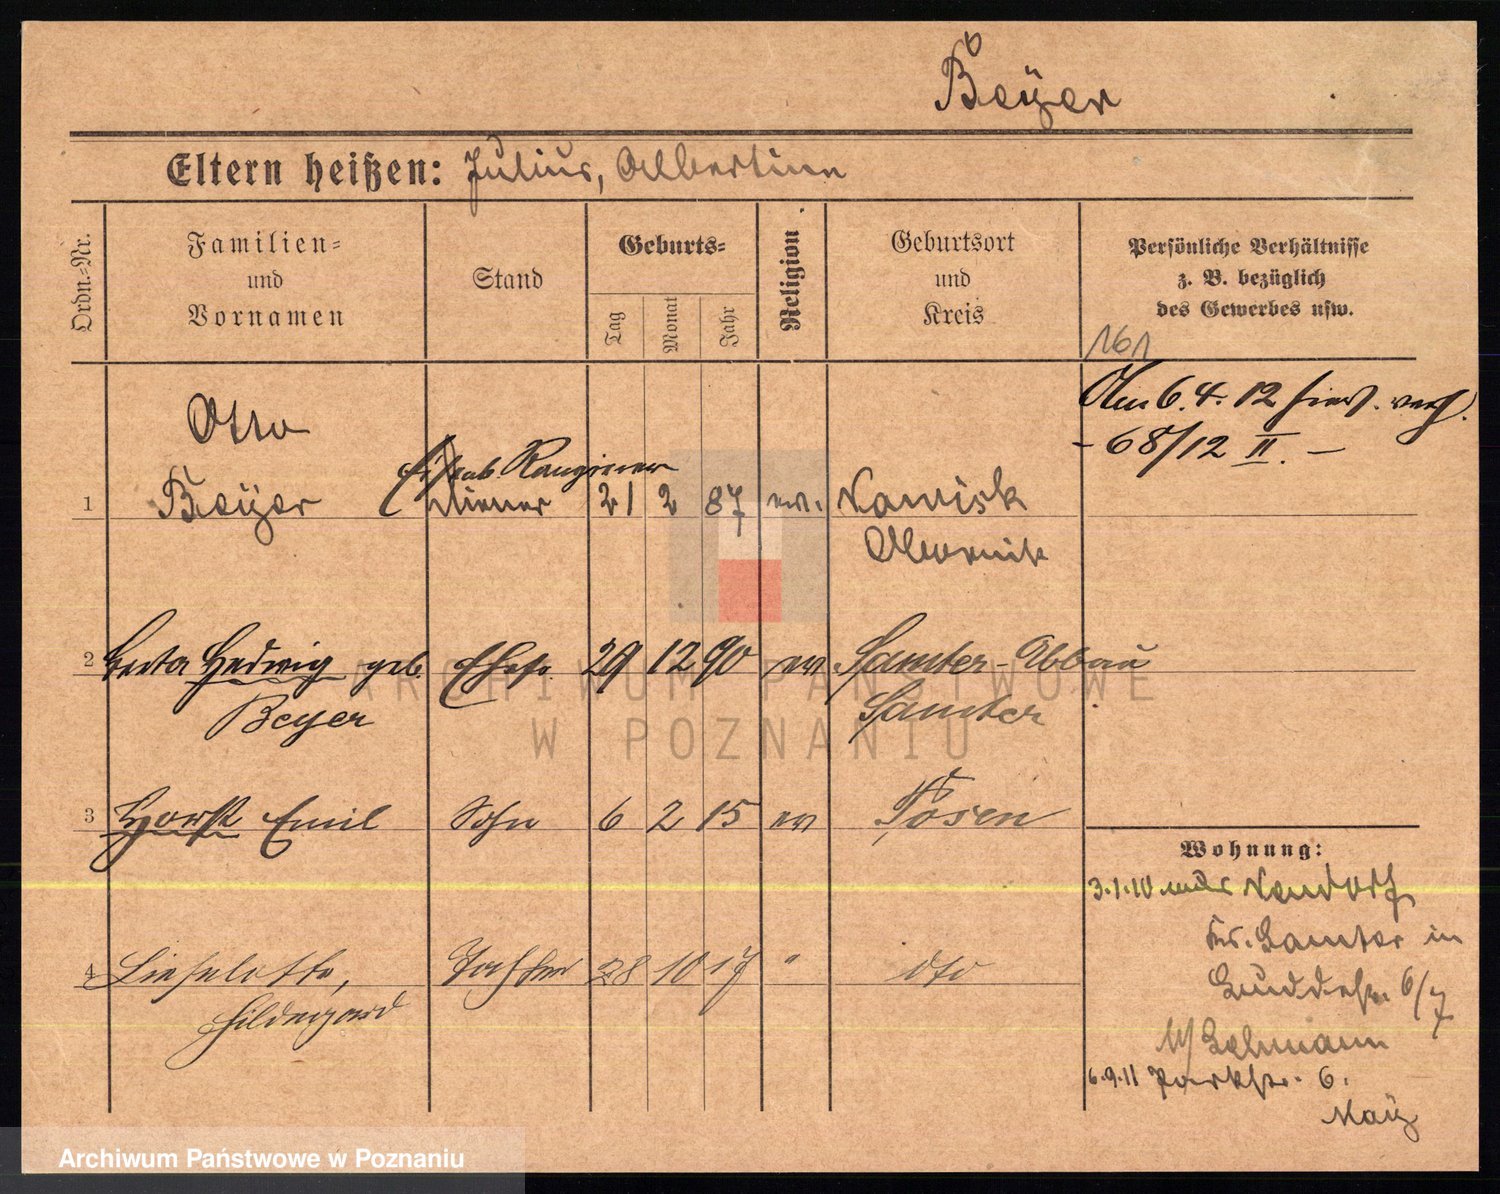 Beÿer
Eltern heißen: Julius, Albertine
Ordn.-Nr.
Familien-
und
Vornamen
Stand
Geburts-
Tag
Monat
Jahr
Religion
Geburtsort
und
Kreis
Persönliche Verhältnisse
z. B. bezüglich
des Gewerbes usw.
161
Am 6.4.12 hier. verh.
- 68/12 II. -
Otto
Rangierer
1 Beÿer Diener 21 2 87 ev.
Obornik
2 Berta Hedwig geb. Ehefr. 29 12 90 ev Samter-Abbau
Beyer Samter
3 Horst Emil Sohn 6 2 15 ev Posen
4 Lieselotte, Tochter 28 10 17 " dto
Hildegard
Wohnung:
3.1.10 Neudorf,
Kr. Samter in
6/7
b/ Lehmann
6.9.11 Parkstr. 6.
ARCHIWUM PAŃSTWOWE
W POZNANIU
Archiwum Państwowe w Poznaniu